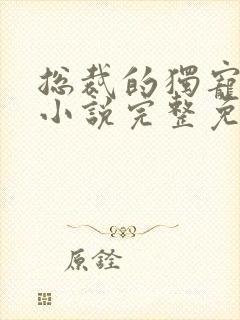 总裁的獨寵
小說完整免
原銓